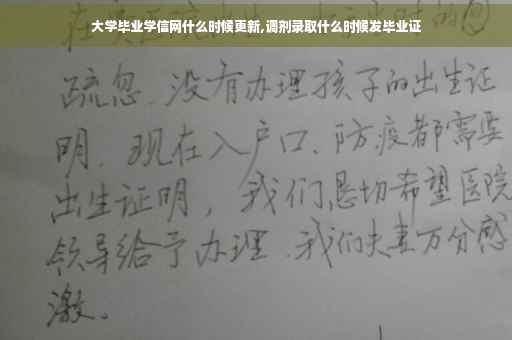 大学毕业学信网什么时候更新,调剂录取什么时候发毕业证
疏忽、没有办理孩子的出生证
明、现在入户口、防疫都需要
出生证明，我们恳切希望医院
领导给予办理、我们夫妻万分感
激。